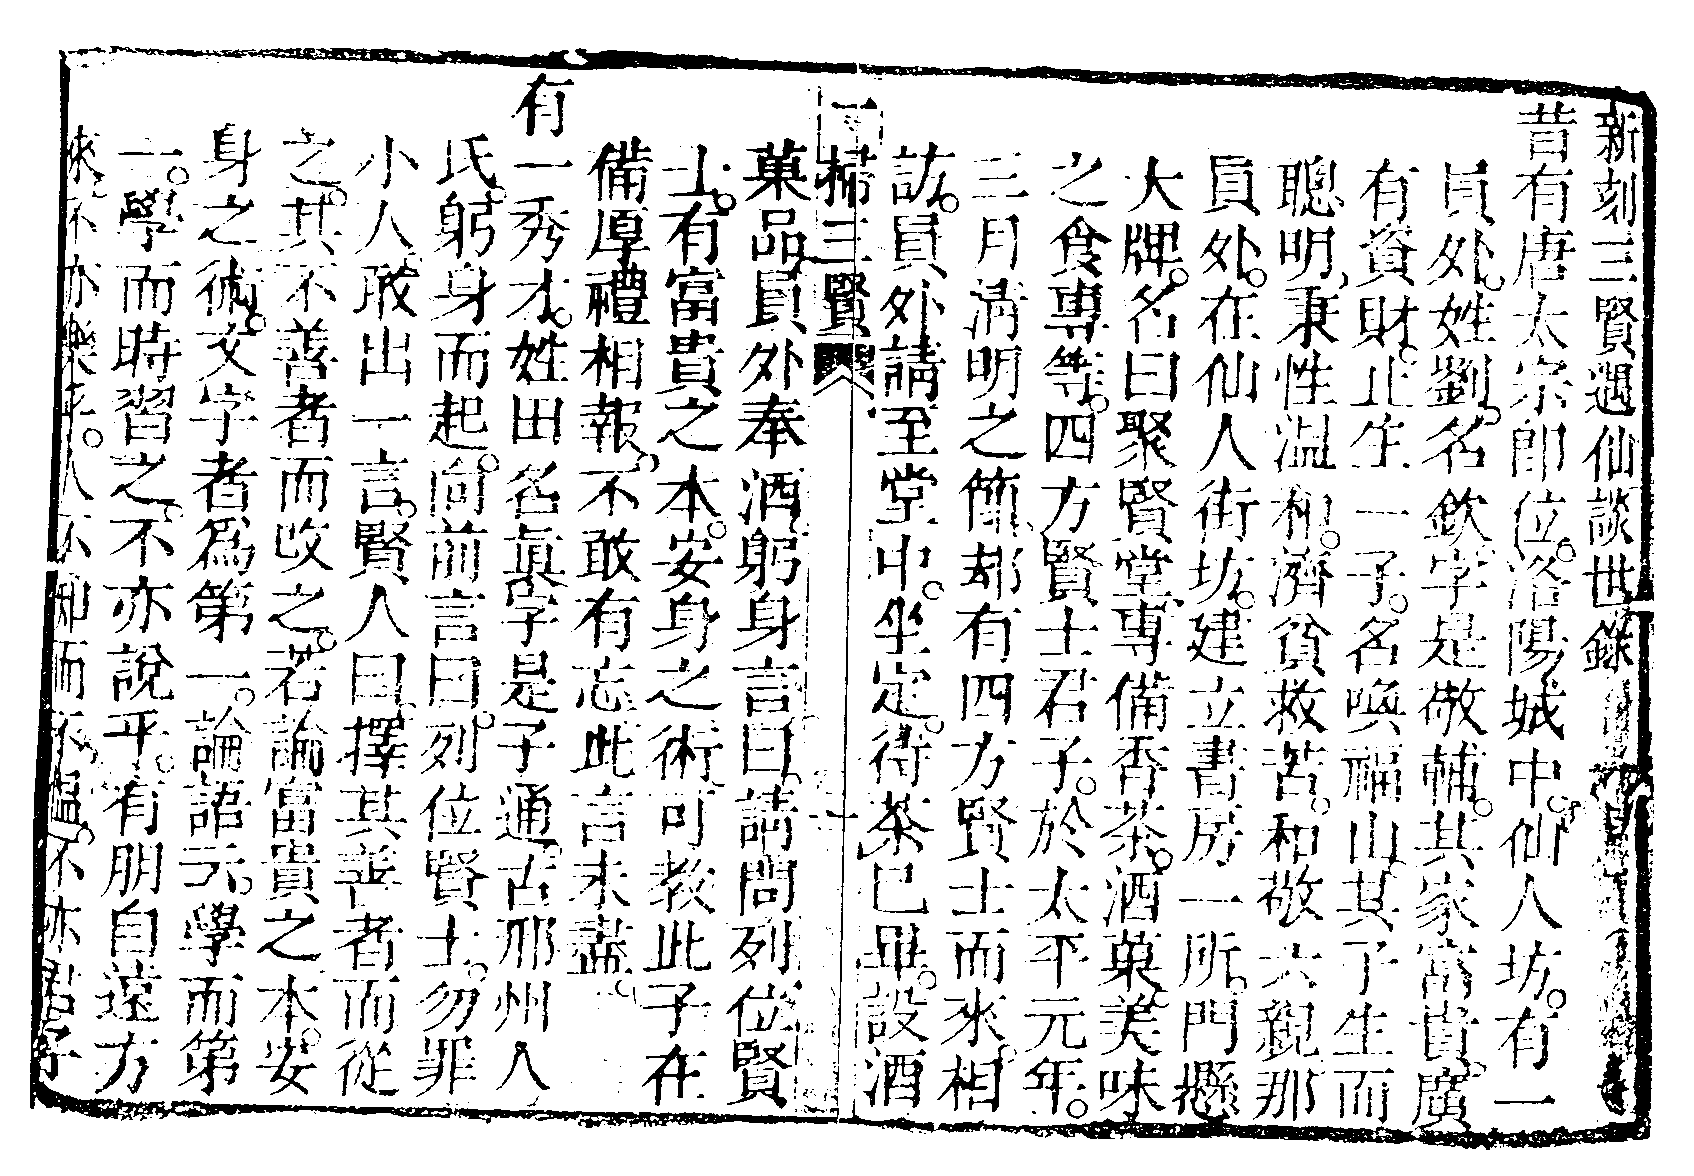 新刻三賢遇仙談世錄
昔有唐太宗郎位。洛陽城中。仙人坊。有一
員外。姓劉。名欽字是敬輔。其家富貴。廣
有資財。止生一子。名喚福山。其子生而
聰明、秉性温和。濟貧救苦。和敬六親那
員外。在仙人街坊。建立書房一所。門懸
大牌。名曰聚賢堂、專備香茶。酒菓美味
之食專等。四方賢士君子。於太平元年。
三月淸明之節、却有四方賢士而來。相
訪。員外請至堂中。坐定。待茶已畢。設酒
掃三賢
菓品、員外奉酒躬身言曰。請問列位賢
士。有富貴之本。安身之術、可教此子在
備厚禮相報、不敢有忘此言未盡。
有一秀才。姓田名眞字是子通、古邢州人
氏。躬身而起。向前言曰。列位賢士。勿罪
小人敢出一言。賢人曰、擇其善者而從
之。其不善者而改之。若論富貴之本。安
身之術。文字者爲第一。論語云。學而第
一。學而時習之。不亦說乎。有朋自遠方
來。不亦樂乎。人不知而不愠。不亦君子